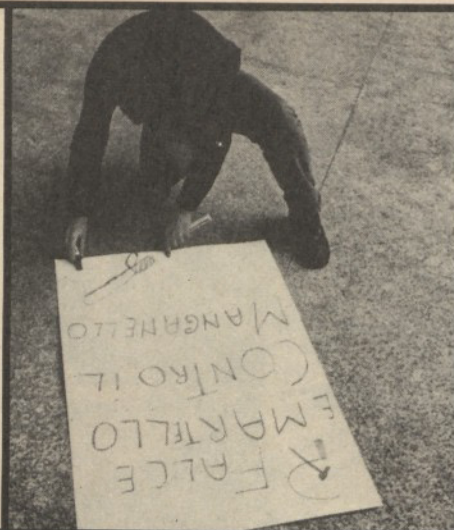 FALCE
E MARTELLO
CONTRO IL
MANGANELLO